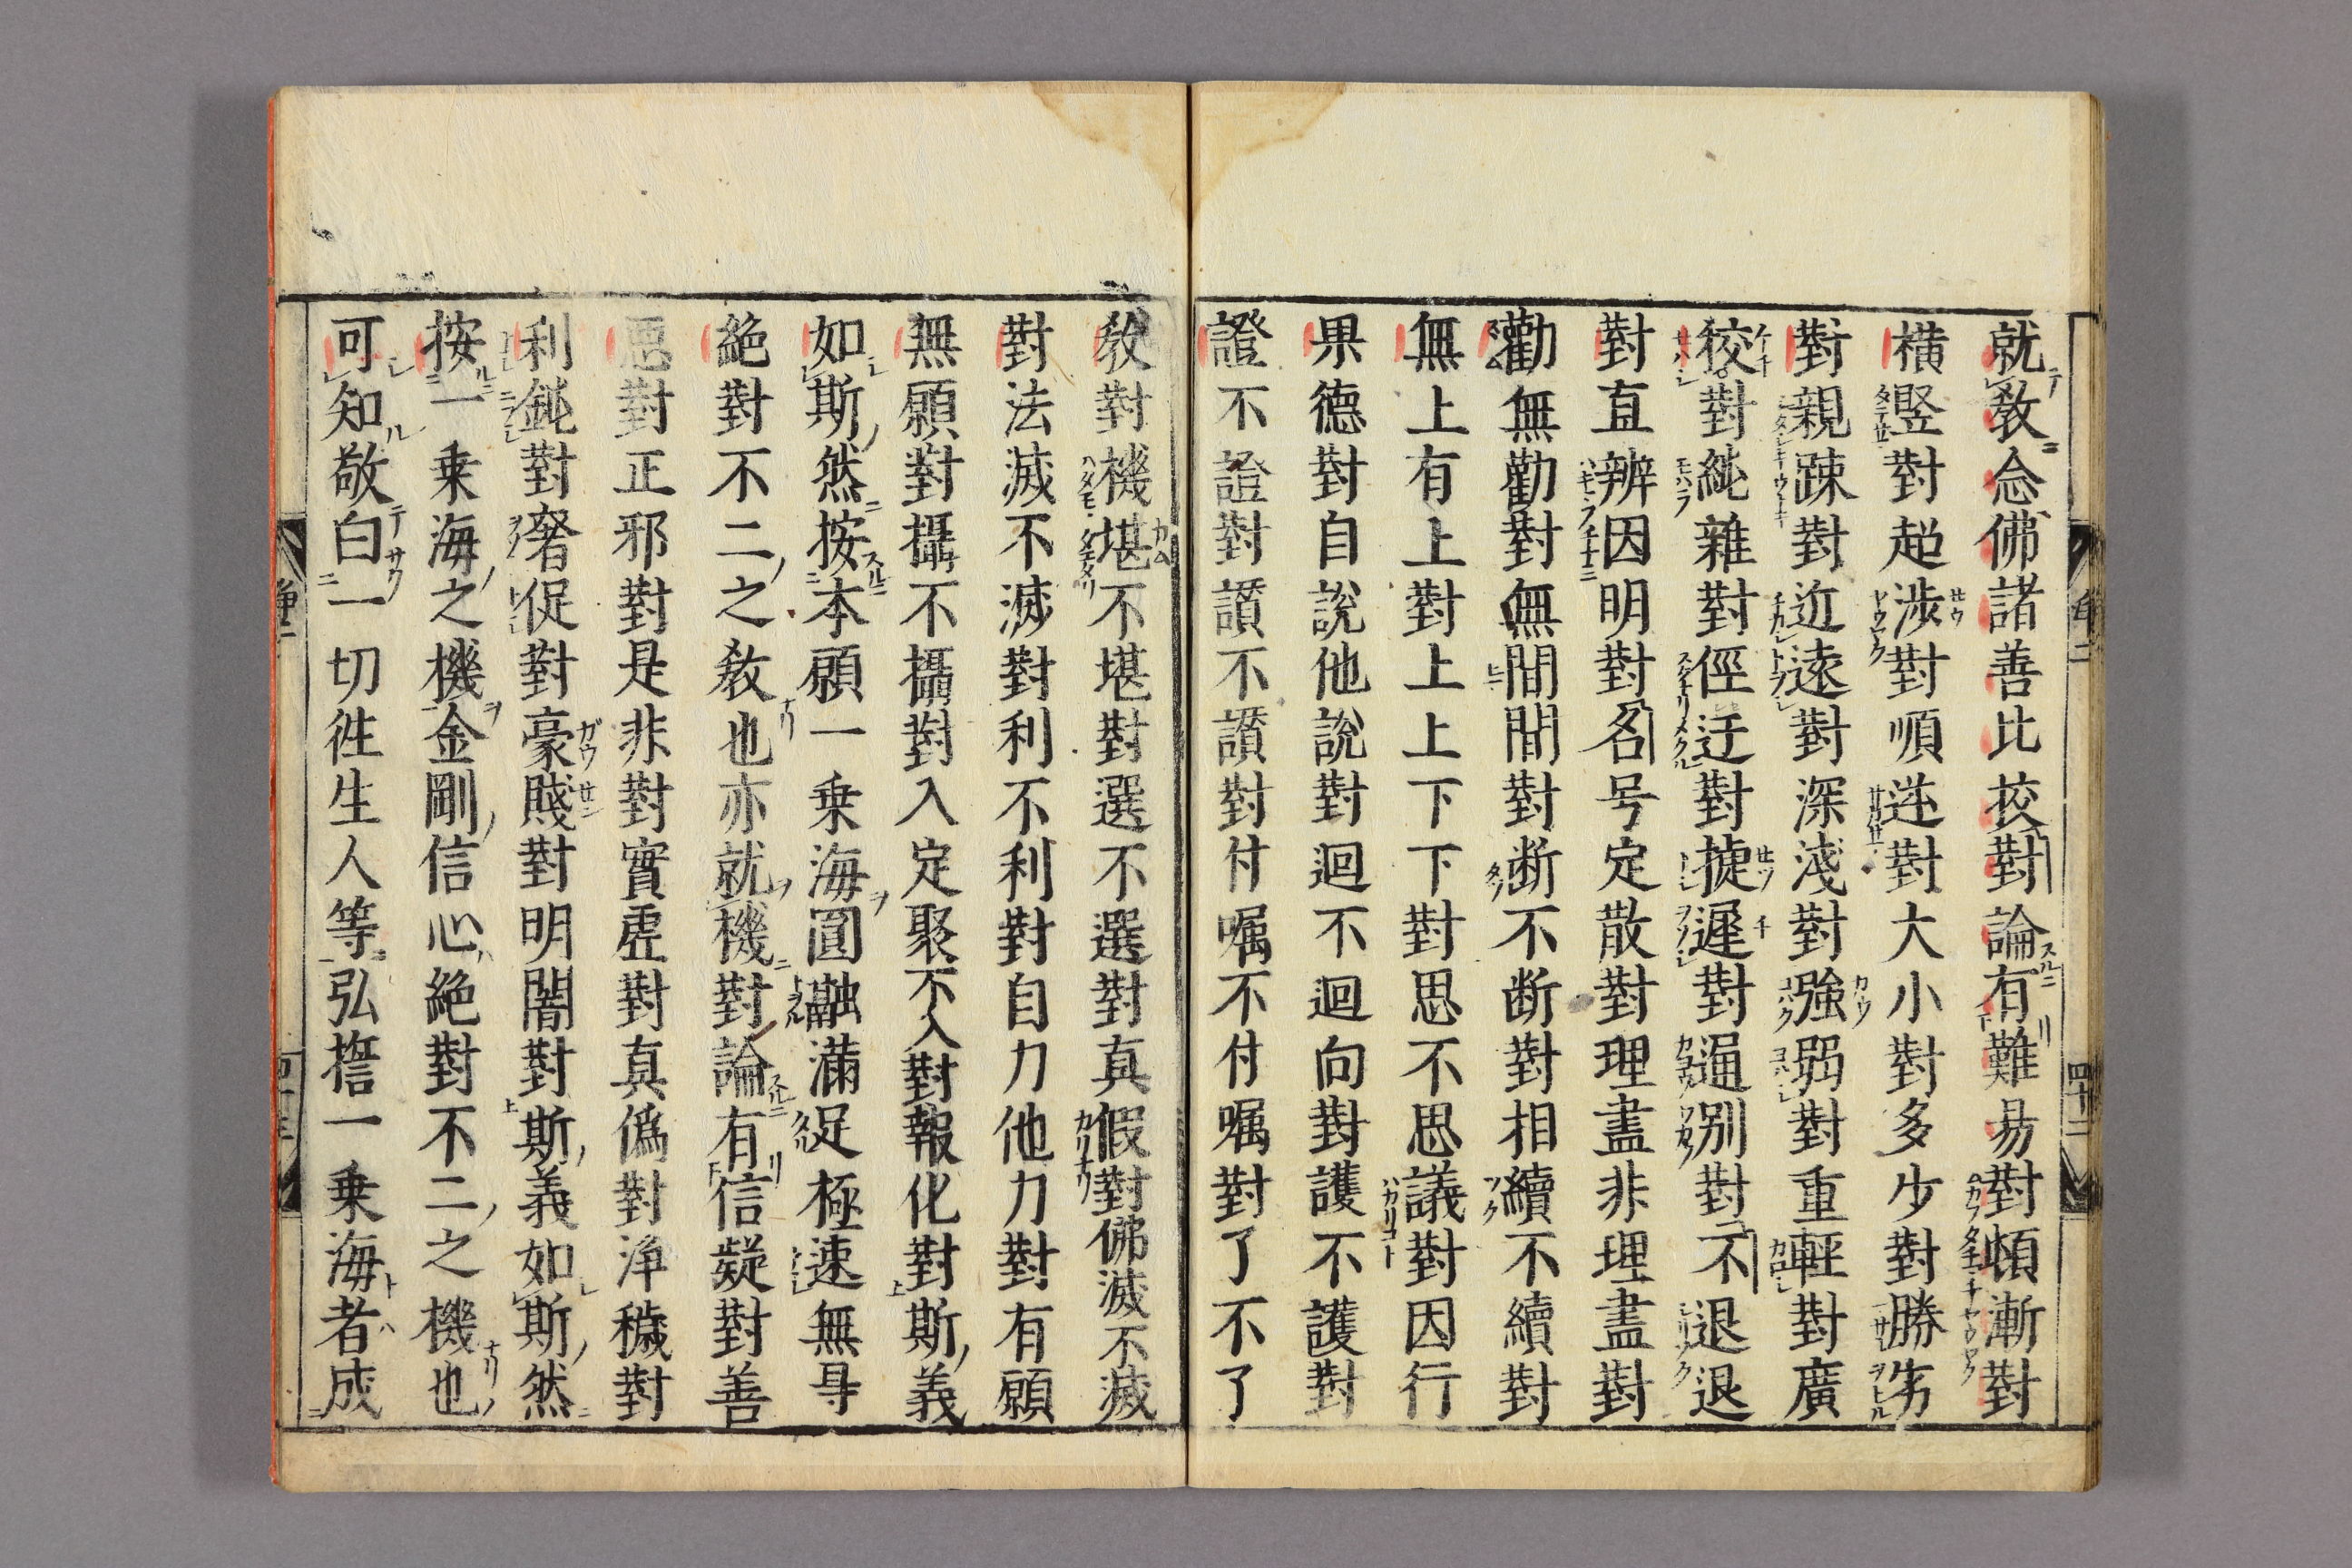 就教念佛諸善比挍對論有難易對頓漸對
横竪對超渉對順逆對大小對多少對勝劣
對親踈對近遠對深淺對強弱對重輕對廣
狡對純雜對徑迂對捷遲對通別對不退退
對直辨因明對名号定散對理盡非理盡對
勸無勸對無間間對断不断對相續不續對
無上有上對上上下下對思不思議對因行
果德對自說他說對迴不迴向對護不護對
證不證對讃不讃對付嘱不付嘱對了不了
教對機堪不堪對選不選對真假對佛滅不滅
對法滅不滅對利不利對自力他力對有願
無願對攝不攝對入定聚不入對報化對斯義
如斯然按本願一乗海圓融滿足極速無㝵
絶對不二之教也亦就機對論有信疑對善
惡對正邪對是非對實虚對真僞對淨穢對
利鈍對奢促對豪賤對明闇對斯義如斯然
按一乗海之機金剛信心絶對不二之機也
可知敬白一切徃生人等弘誓一乗海者成